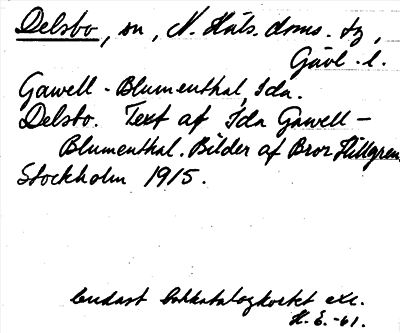 Delsbo, sn, N. Häls. doms. tg,
Gävl. l.
Gawell-Blumenthal, Ida.
Delsbo. Text af Ida Gawell-
Blumenthal. Bilder af Bror Hillgren
Stockholm 1915.
Endast bokkatalogkortet exc.
H. E. -61.